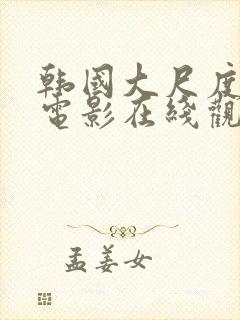 韩國大尺度
電影在綫觀
孟姜女